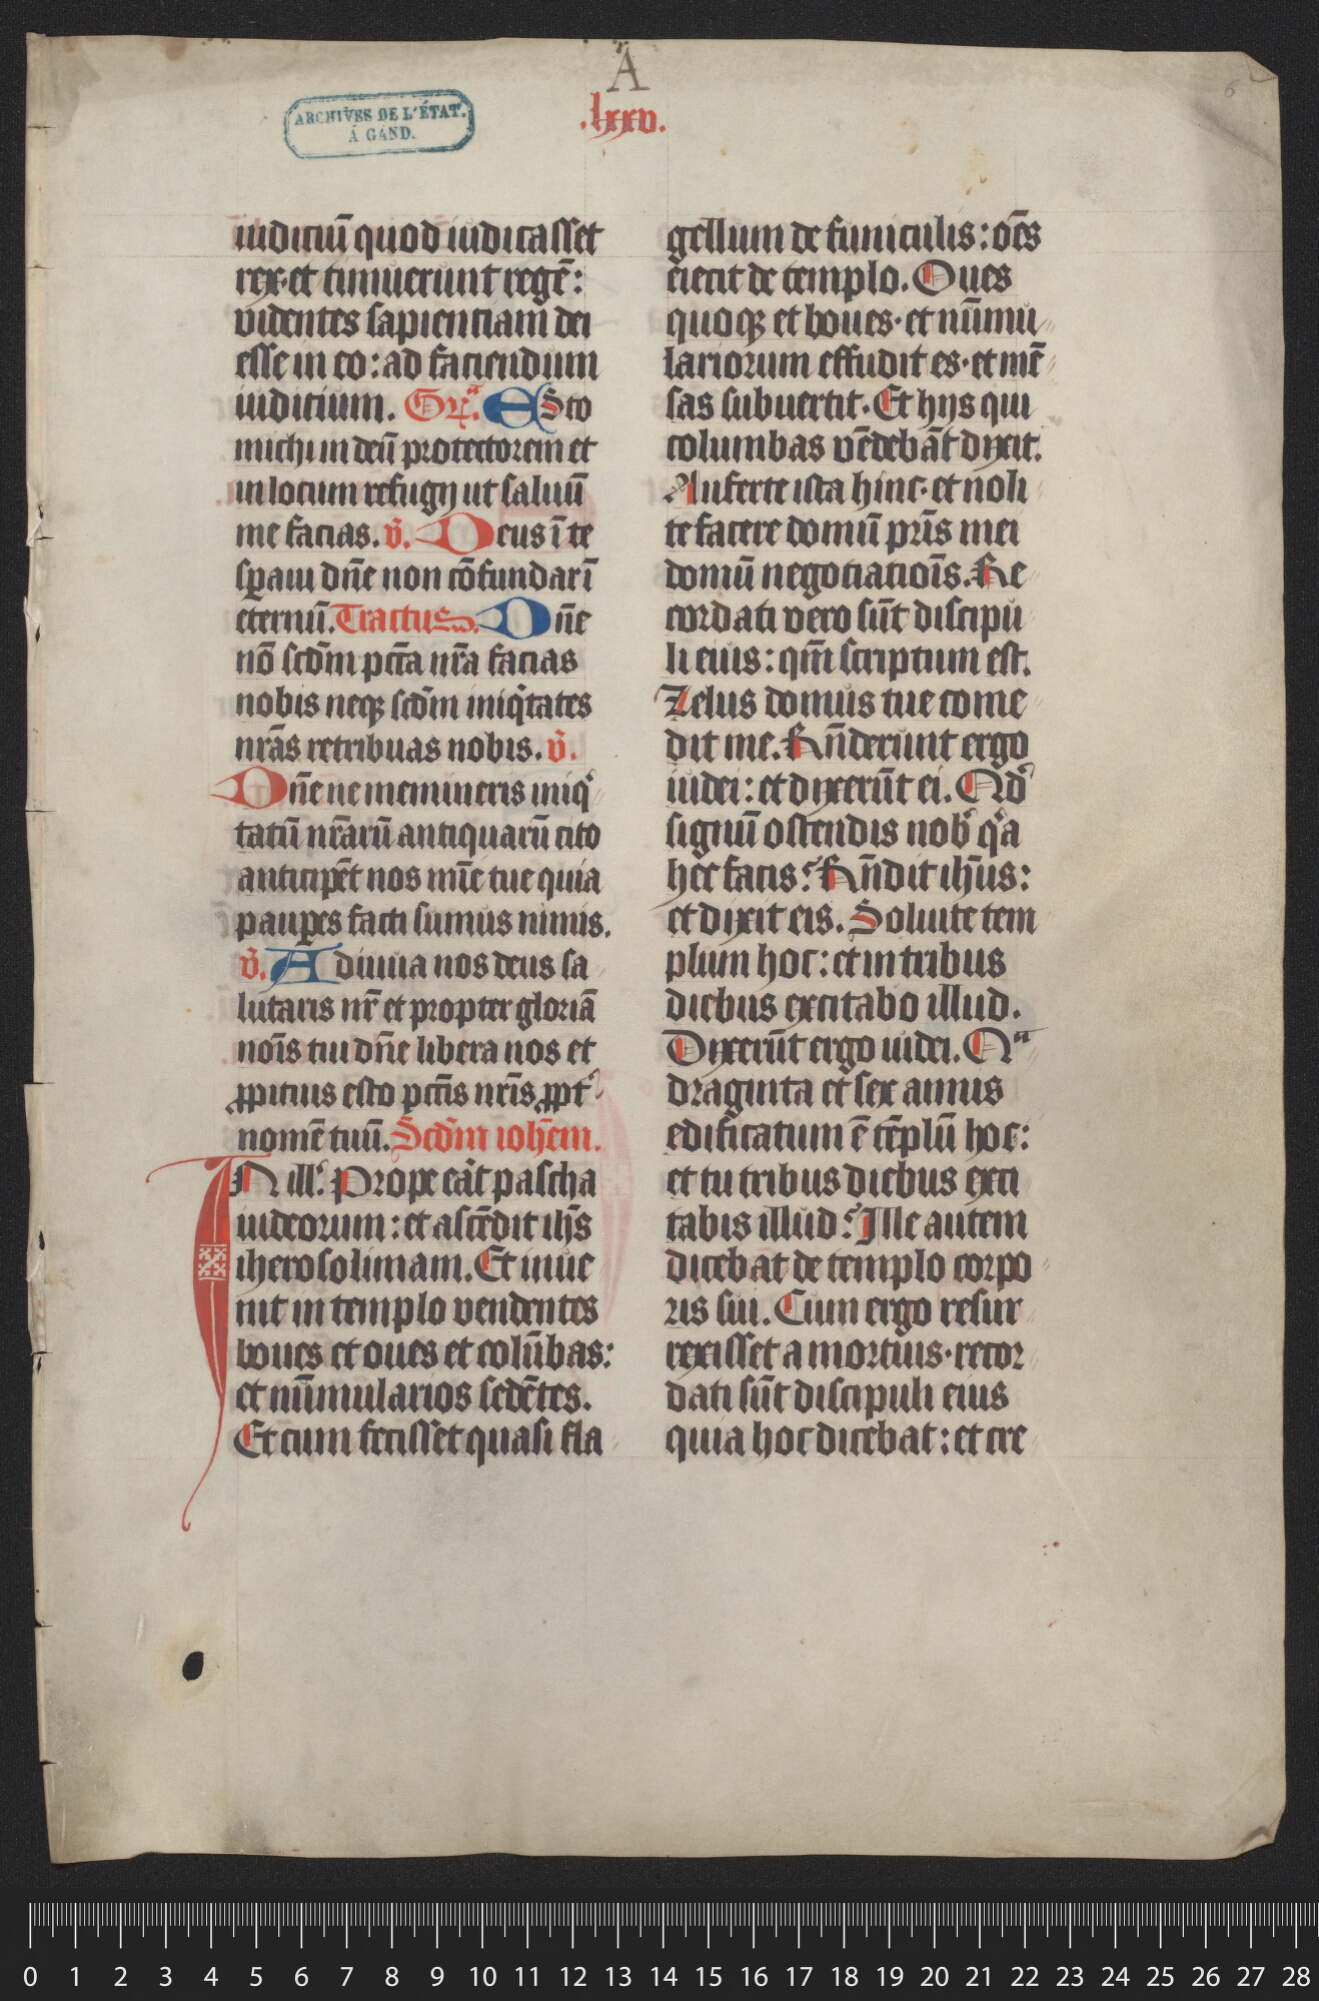 A
.lxxv.
6
ARCHIVES DE L'ÉTAT.
À GAND.
iudiciū quod iudicasset
rex·et timuerunt regē:
videntes sapienciam dei
esse in eo: ad faciendum
iudicium. Gr̄a. ESto
michi in deū protectorem et
in locum refugij ut saluū
me facias. v̄. Deus ī te
sꝑaui dn̄e non cōfundar ī
eternū. Tractus. Dn̄e
nō scd̄m pctā nr̄a facias
nobis neqꝫ scd̄m iniq̇tates
nrās retribuas nobis. v̄.
Dn̄e ne memineris iniq̇
tatū nr̄arū antiquarū cito
anticipēt nos mīe tue quia
pauꝑes facti sumus nimis.
v̄. Adiuua nos deus sa
lutaris nr̄ et propter gloriā
noīs tui dn̄e libera nos et
ꝓpitius esto pctīs nrīs ꝓpt̾
nomē tuū. Scd̄m ioh̄em.
IN ill̾. Prope eāt pascha
iudeorum: et ascēdit ih̄s
iherosolimam. Et inue
nit in templo vendentes
boues et oues et colūbas:
et nūmularios sedētes.
Et cum fecisset quasi fla
gellum de funiculis: oēs
eiecit de templo. Oues
quoqꝫ et boues· et nūmu
lariorum effudit es· et mē
sas subuertit. Et hijs qui
columbas vēdebāt dixit.
Auferte ista hinc· et noli
te facere domū prīs mei
domū negotiatioīs. Re
cordati vero sūt discipu
li eius: qm̄ scriptum est.
Zelus domus tue come
dit me. Rn̄derunt ergo
iudei: et dixerūt ei. Qd̾
signū ostendis nob̾ qͣa
hec facis? Rn̄dit ih̄us:
et dixit eis. Soluite tem
plum hoc: et in tribus
diebus excitabo illud.
Dixerūt ergo iudei. Qͣ
draginta et sex annis
edificatum ē tēplū hoc:
et tu tribus diebus exci
tabis illud? Ille autem
dicebat de templo corpo
ris sui. Cum ergo resur
rexisset a mortuis· recor
dati sūt discipuli eius
quia hoc dicebat: et cre
0 1 2 3 4 5 6 7 8 9 10 11 12 13 14 15 16 17 18 19 20 21 22 23 24 25 26 27 28